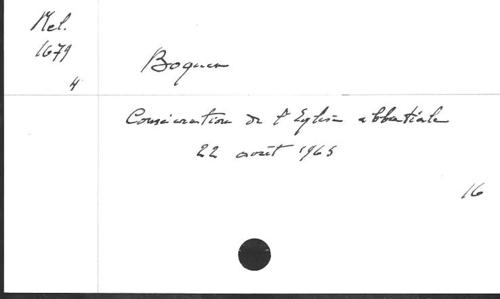 Mel.
1679
4
Boquen
Consécration de l'Eglise abbatiale
22 août 1965
16